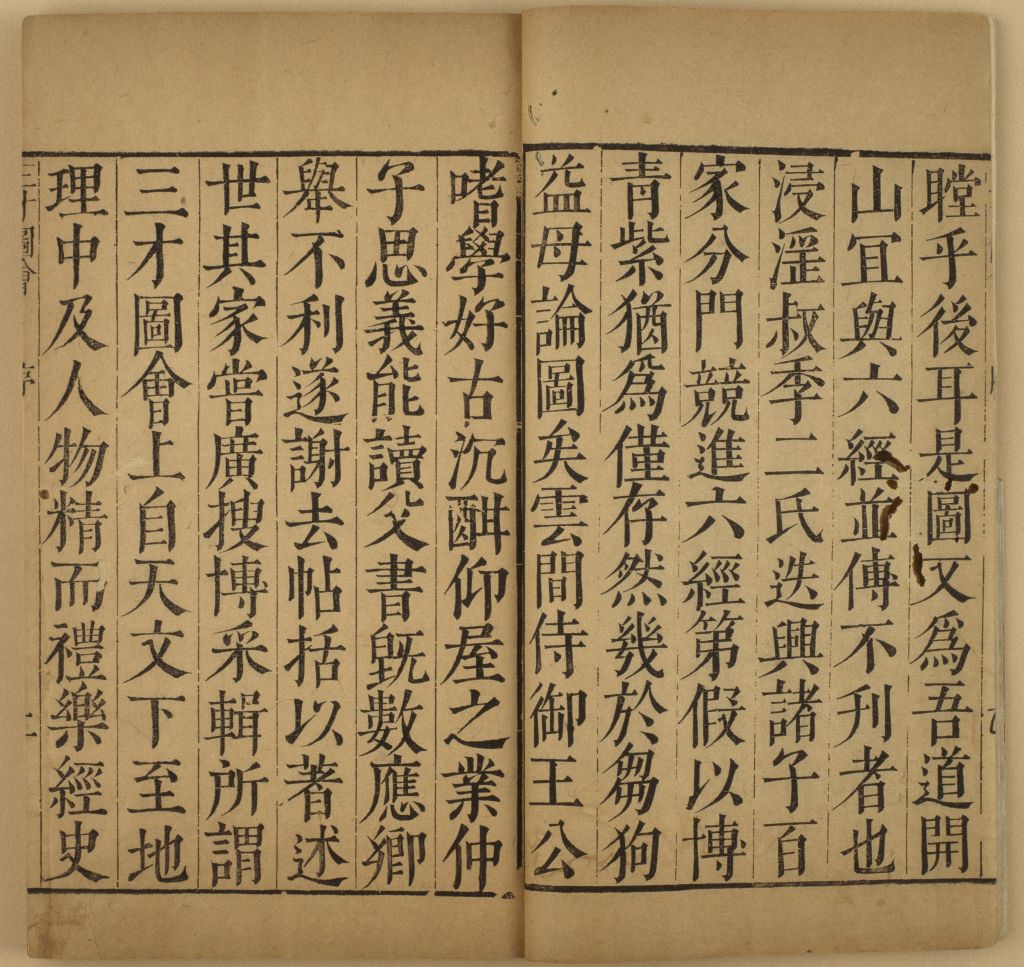 瞠乎後耳是圖又爲吾道開
山冝與六經並傳不刋者也
浸滛叔季二氏迭興諸子百
家分門競進六經第假以博
青紫猶爲僅存然幾於芻狗
益母論圖矣雲間侍御王公
嗜學好古沉酣仰屋之業仲
子思義能讀父書旣數應鄉
舉不利遂謝去帖括以著述
世其家嘗廣搜博采輯所謂
三才圖會上自天文下至地
理中及人物精而禮樂經史
三才圖會 序